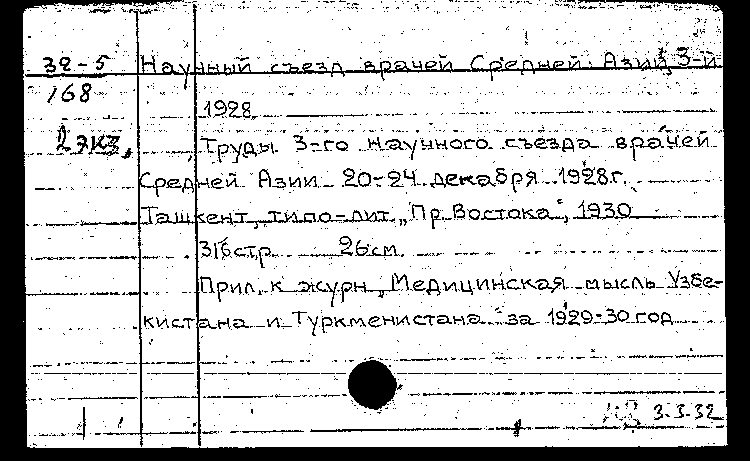 32-5 Научный съезд врачей Средней Азии, 3-й
168
1928
2 экз. Труды 3-го научного съезда врачей
Средней Азии 20-24 декабря 1928г.
Ташкент, типо-лит. „Пр. Востока", 1930
316стр 26см.
Прил. к журн. „Медицинская мысль Узбе-
кистана и Туркменистана" за 1929-30 год
3.3.32